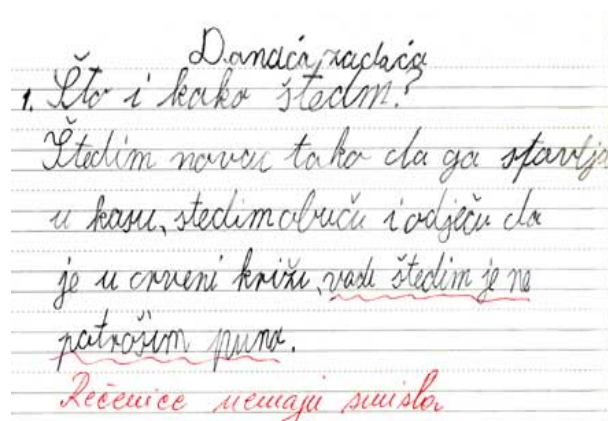 Domaća zadaća
1. Što i kako štedim?
Štedim novac tako da ga stavlja
u kasu, stedim obuču i odječu da
je u crveni križu, vadu štedim je ne
patrošim puna.
Rečenice nemaju smisla